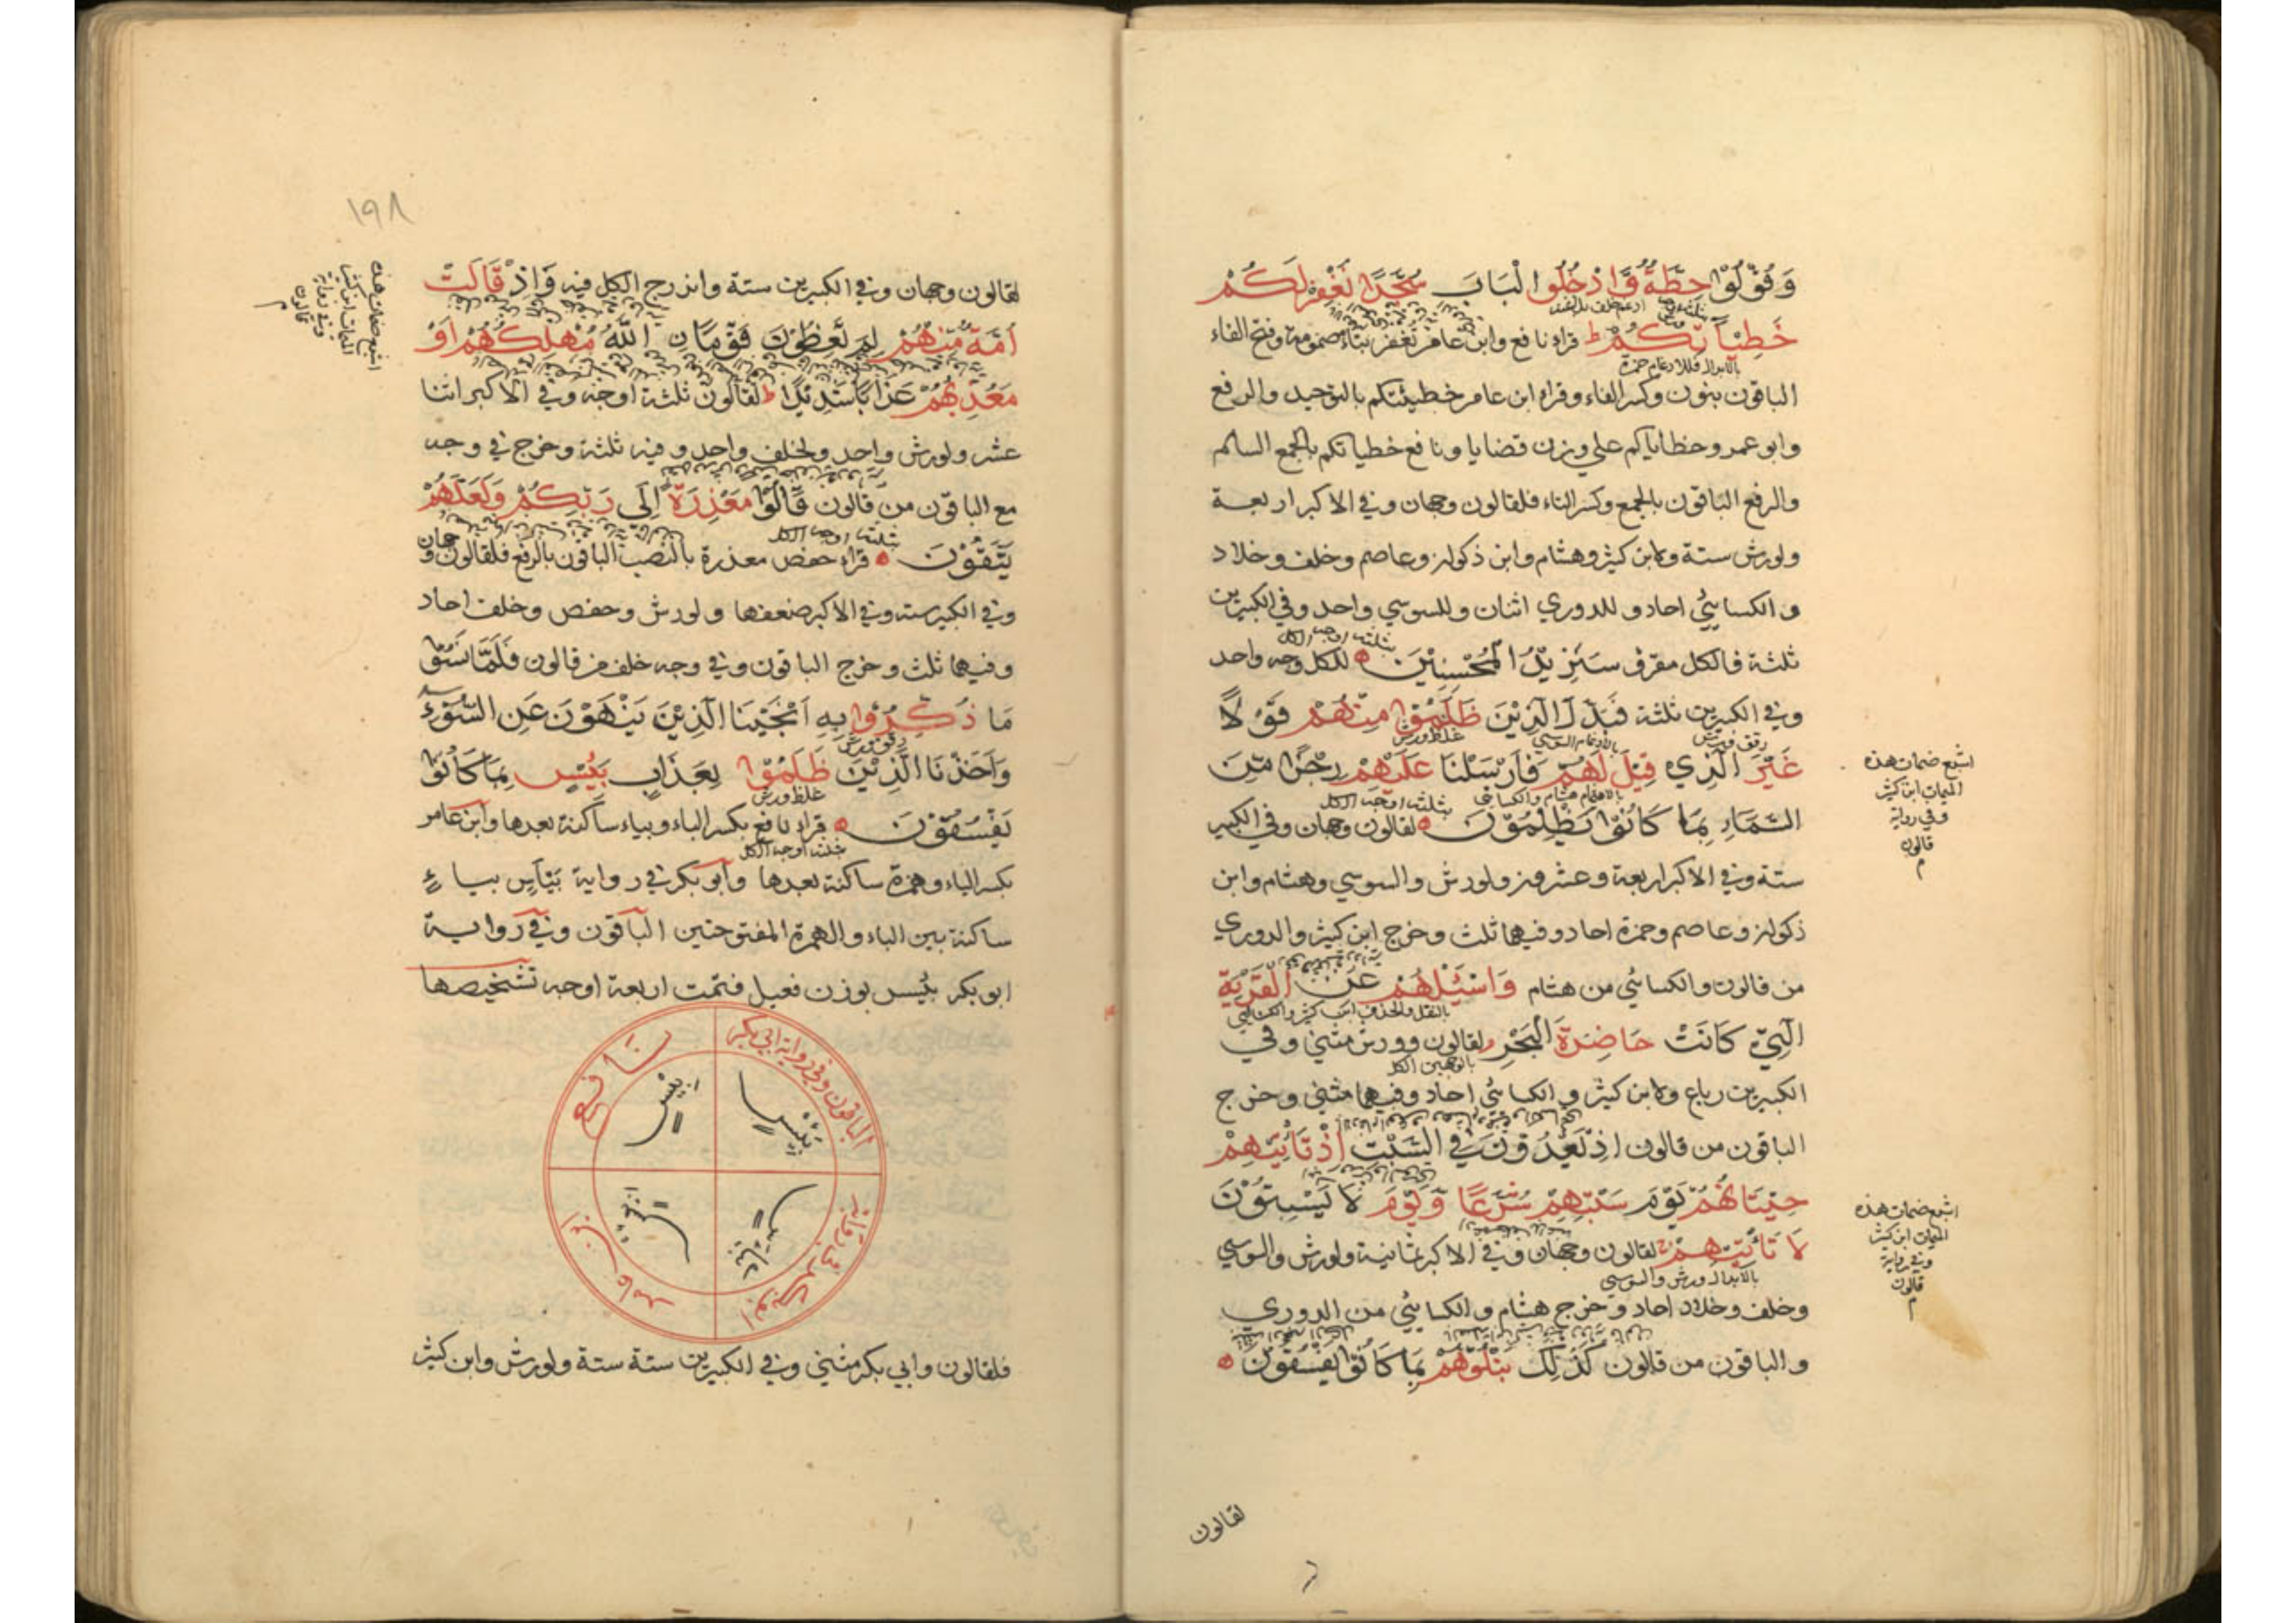 وَقُوْلُوْا حِطَّةٌ وَّادْخُلُوا الْبَابَ سُجَّدًا نَغْفِرْ لَكُمْ
خَطِيْاٰتِكُمْ ط قراء نافع وابن عامر تُغفر بتاء مضمومة وفتح الفاء
بالابدال فللادغام حمزة
الباقون بنون وكسر الفاء وقراء ابن عامر خطيئتكم بالتوحيد والرفع
وابو عمرو خطاياكم علي وزن قضايا ونافع خطياتكم بالجمع السالم
والرفع الباقون بالجمع وكسر التاء فلقالون وجهان وفي الاكبر اربعة
ولورش ستة ولابن كثير وهشام وابن ذكوان وعاصم وخلف وخلاد
والكسائي احاد وللدوري اثنان وللسوسي واحد وفي الكبيرين
ثلثة اوجه الكل
ثلثة فالكل مقرؤ سَنَزِيْدُ الْمُحْسِنِيْنَ للكل وجه واحد
وفي الكبيرين ثلثة فَبَدَّلَ الَّذِيْنَ ظَلَمُوْا مِنْهُمْ قَوْلًا
رقق ورش بالادغام السوسي غلظ ورش
غَيْرَ الَّذِي قِيْلَ لَهُمْ فَاَرْسَلْنَا عَلَيْهِمْ رِجْزًا مِّنَ
بالاشمام هشام والكسائي ثلثة اوجه الكل
السَّمَاءِ بِمَا كَانُوْا يَظْلِمُوْنَ لقالون وجهان وفي الكبير
ستة وفي الاكبر اربعة وعشرون ولورش والسوسي وهشام وابن
ذكوان وعاصم وحمزة احاد وفيها ثلث وخرج ابن كثير والدوري
من قالون والكسائي من هشام وَاسْئَلْهُمْ عَنِ الْقَرْيَةِ
بالنقل والحذف ابن كثير والكسائي
الَّتِيْ كَانَتْ حَاضِرَةَ الْبَحْرِ لقالون وورش مثني وفي
بالوجهين الكل
الكبيرين رباع ولابن كثير والكسائي احاد وفيهما مثني وخرج
الباقون من قالون اِذْ يَعْدُوْنَ فِي السَّبْتِ اِذْ تَأْتِيْهِمْ
حِيْتَانُهُمْ يَوْمَ سَبْتِهِمْ شُرَّعًا وَّيَوْمَ لَا يَسْبِتُوْنَ
لَا تَأْتِيْهِمْ لقالون وجهان وفي الاكبر ثمانية ولورش والسوسي
بالابدال ورش والسوسي
وخلف وخلاد احاد وخرج هشام والكسائي من الدوري
والباقون من قالون كَذٰلِكَ نَبْلُوْهُمْ بِمَا كَانُوْا يَفْسُقُوْنَ
لقالون
اشبع ضمات هذه
الميمات ابن كثير
وفي رواية
قالون
م
اشبع ضمات هذه
الميمات ابن كثير
وفي رواية
قالون
م
١٩٨
لقالون وجهان وفي الكبيرين ستة واندرج الكل فيه وَاِذْ قَالَتْ
اُمَّةٌ مِّنْهُمْ لِمَ تَعِظُوْنَ قَوْمَا نِ اللّٰهُ مُهْلِكُهُمْ اَوْ
مُعَذِّبُهُمْ عَذَابًا شَدِيْدًا ط لقالون ثلثة اوجه وفي الاكبر اثنا
عشر ولورش واحد ولخلف واحد وفيه ثلثة وخرج في وجه
مع الباقون من قالون قَالُوْا مَعْذِرَةً اِلٰى رَبِّكُمْ وَلَعَلَّهُمْ
ثلثة اوجه الكل
يَتَّقُوْنَ قراء حفص معذرة بالنصب الباقون بالرفع فلقالون وجهان
وفي الكبير ستة وفي الاكبر ضعفها ولورش وحفص وخلف احاد
وفيها ثلث وخرج الباقون وفي وجه خلف من قالون فَلَمَّا نَسُوْا
مَا ذُكِّرُوْا بِهٖ اَنْجَيْنَا الَّذِيْنَ يَنْهَوْنَ عَنِ السُّوْٓءِ
رقق ورش
وَاَخَذْنَا الَّذِيْنَ ظَلَمُوْا بِعَذَابٍ بَئِيْسٍ بِمَا كَانُوْا
غلظ ورش
يَفْسُقُوْنَ قراء نافع بكسر الباء وبياء ساكنة بعدها وابن عامر
ثلثة اوجه الكل
بكسر الباء وهمزة ساكنة بعدها وابو بكر في رواية بَيْأَسٍ بياء
ساكنة بين الباء والهمزة المفتوحتين الباقون وفي رواية
ابو بكر بئيس بوزن فعيل فتمت اربعة اوجه تشخيصها
الباقون وفي رواية ابي بكر
نافع
ابن عامر
ابو بكر في رواية
فلقالون وابي بكر مثني وفي الكبيرين ستة ستة ولورش وابن كثير
اشبع ضمات هذه
الميمات ابن كثير
وفي رواية
قالون
م